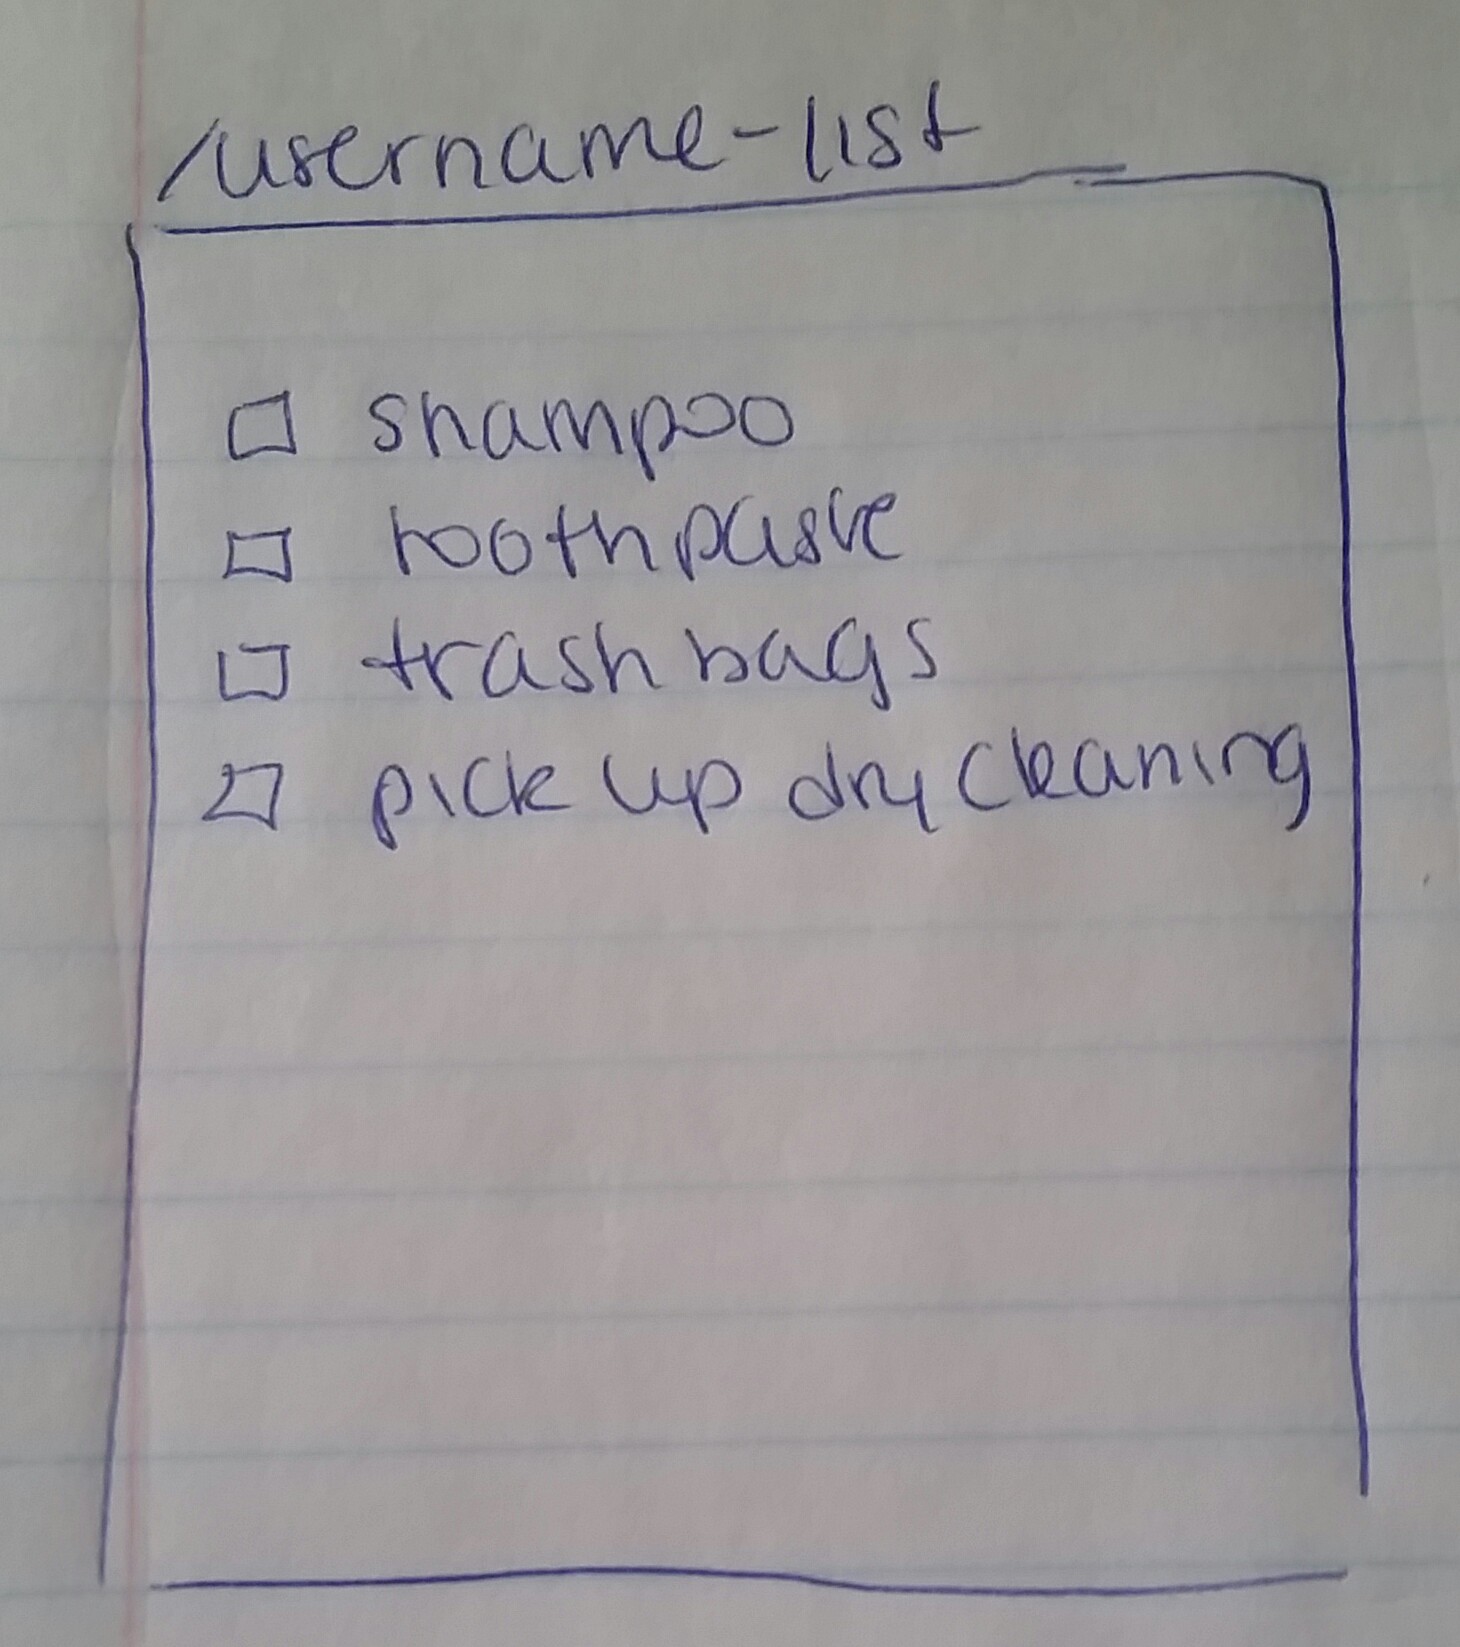 /username-list
shampoo
toothpaste
trash bags
pick up dry cleaning